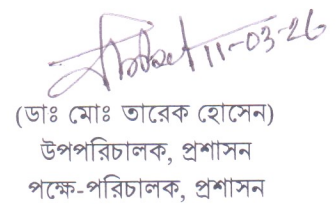 11-03-26
(ডাঃ মোঃ তারেক হোসেন)
উপপরিচালক, প্রশাসন
পক্ষে-পরিচালক, প্রশাসন